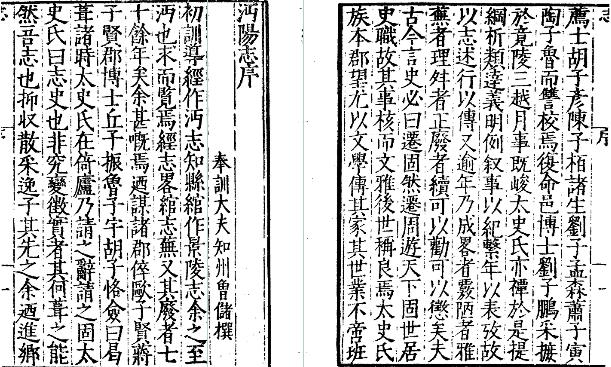 沔陽志序
奉訓大夫知州曾儲撰
初訓導經作沔志知縣綰作景陵志余之至
沔也求而覽焉經志畧綰志蕪又其廢者七
十餘年矣余甚嘅焉迺謀諸郡倅歐子賢蔣
子賢郡博士丘子振魯子宇胡子恪僉曰曷
葺諸時太史氏在倚廬乃請之辭請之固太
史氏曰志史也非究變徵實者其何葺之能
然吾志也拆収散采逸子其先之余迺進鄉
薦士胡子彥陳子栢諸生劉子孟森蕭子寅
陶子魯而讐校焉復命邑博士劉子鵬采摭
於竟陵三越月事既峻太史氏亦禫於是提
綱析類達義明例叙事以紀繫年以表攷故
以志述行以傳又逾年乃成畧者覈陋者雅
蕪者理舛者正廢者續可以勸可以懲矣夫
古今言史必曰遷固然遷周遊天下固世居
史職故其事核而文雅後世稱良焉太史氏
族本郡望尤以文學傳其家其世業不啻班